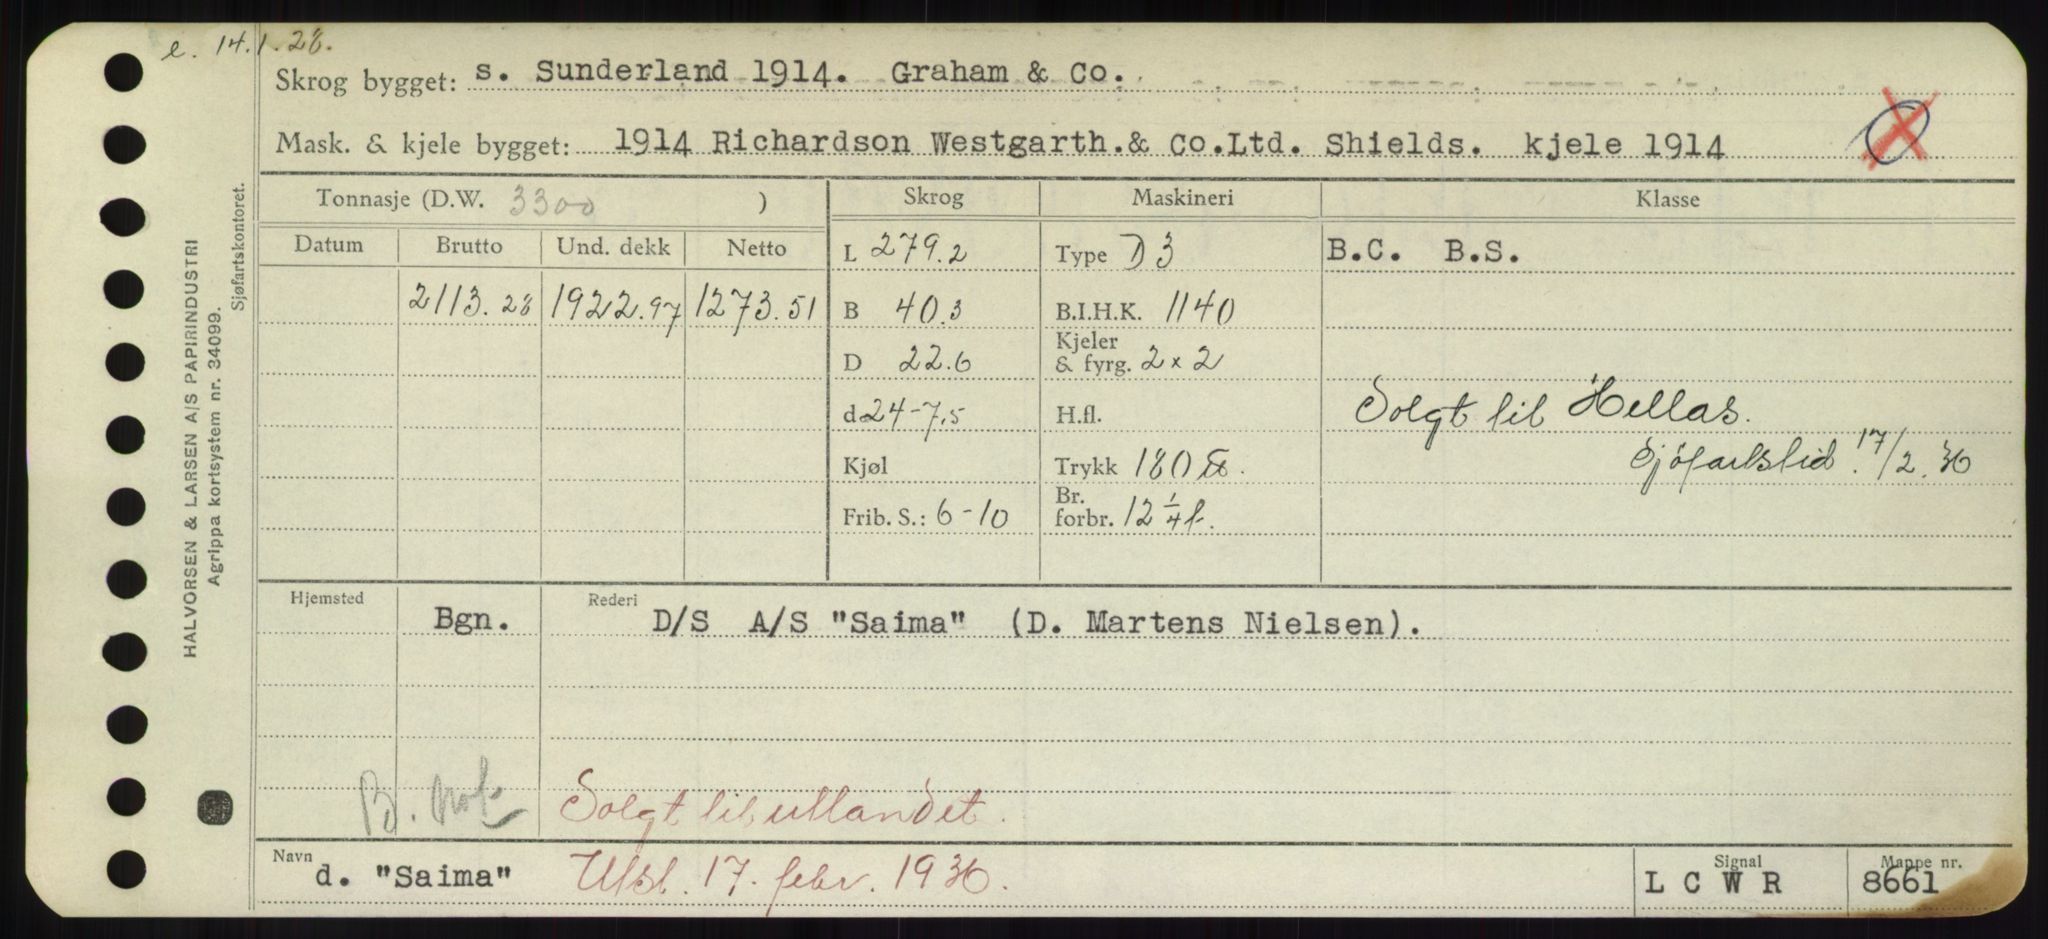 e. 14.1.28.
Skrog bygget: s. Sunderland 1914. Graham & Co.
Mask. & kjele bygget: 1914 Richardson Westgarth.& Co.Ltd. Shields. kjele 1914
Tonnasje (D.W. 3300 ) Skrog Maskineri Klasse
Datum Brutto Und. dekk Netto L 279.2 Type D 3 B.C. B.S.
2113.28 1922.97 1273.51 B 40.3 B.I.H.K. 1140
D 22.6 Kjeler & fyrg. 2 x 2
d 24-7,5 H.fl. Solgt til Hellas.
Kjøl Trykk 180 Sjöfartstid. 17/2.36
Frib. S.: 6-10 Br. forbr. 12 1/4 t.
Hjemsted Rederi
Bgn. D/S A/S "Saima" (D. Martens Nielsen).
B. Solgt til utlandet.
Navn d. "Saima" Utsl. 17. febr. 1936. Signal L C W R Mappe nr. 8661
HALVORSEN & LARSEN A/S PAPIRINDUSTRI
Agrippa kortsystem nr. 34099.
Sjøfartskontoret.